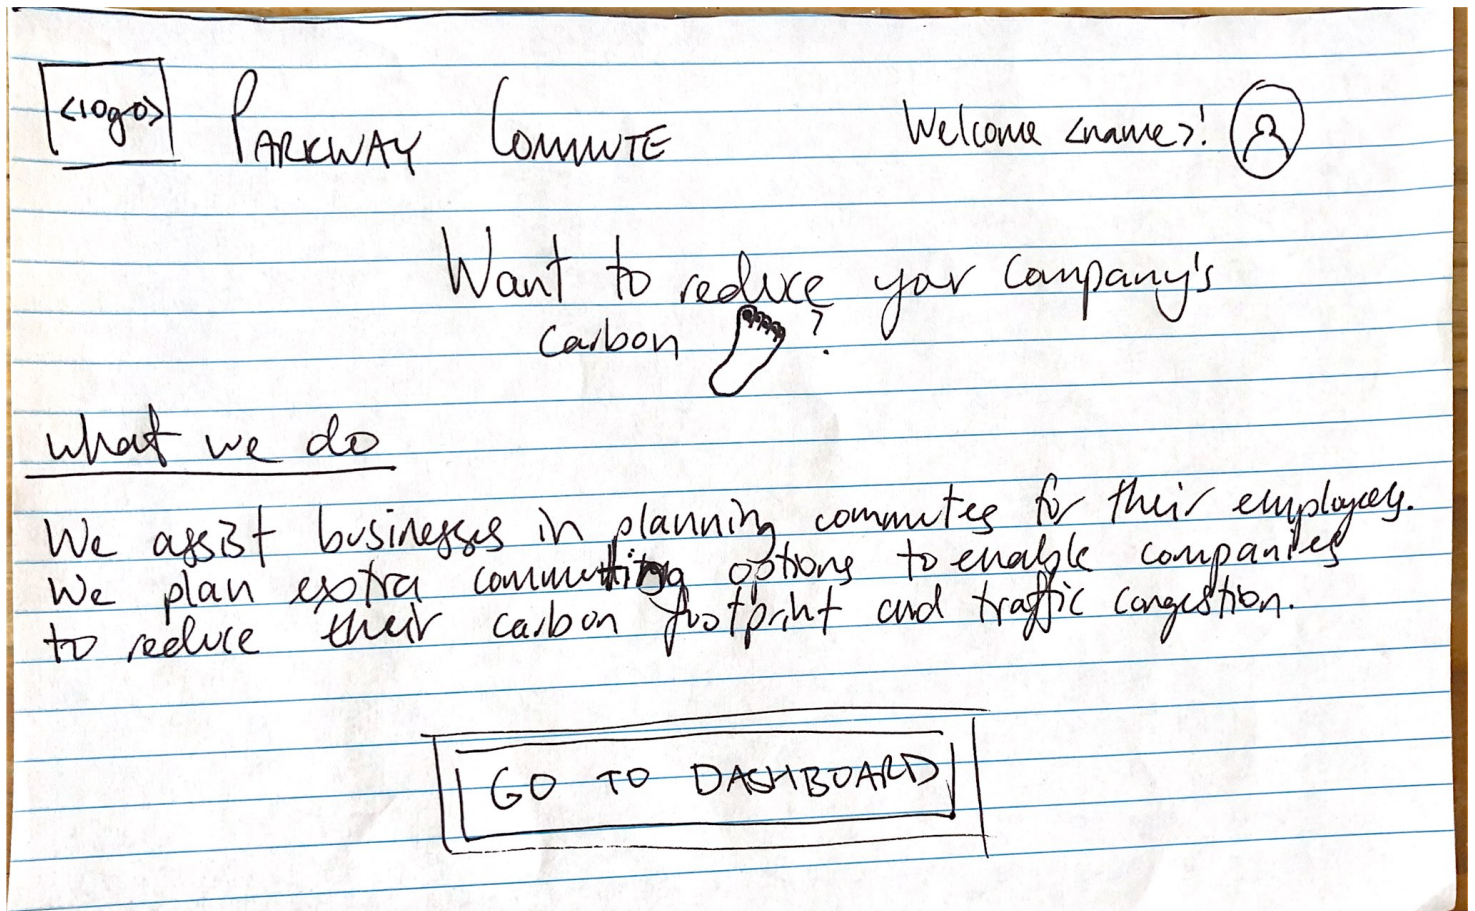 <logo> PARKWAY COMMUTE Welcome <name>!
Want to reduce your company's
carbon ?
what we do
We assist businesses in planning commutes for their employees.
We plan extra commuting options to enable companies
to reduce their carbon footprint and traffic congestion.
GO TO DASHBOARD